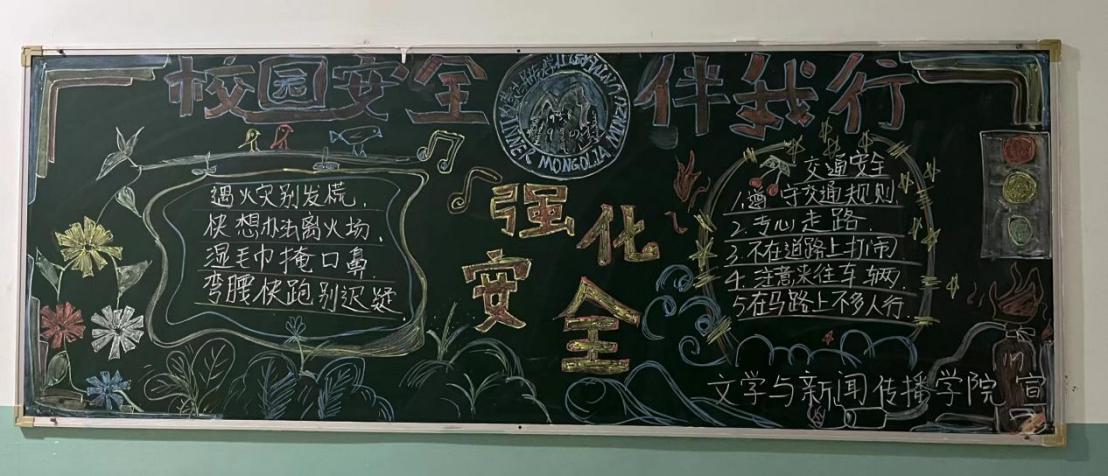 校园安全 伴我行
INNER MONGOLIA
遇火灾别发慌,
快想办法离火场,
湿毛巾掩口鼻,
弯腰快跑别迟疑.
强化
安全
交通安全
1.遵守交通规则
2.专心走路.
3.不在道路上打闹
4.注意来往车辆.
5在马路上不多人行.
文学与新闻传播学院 宣